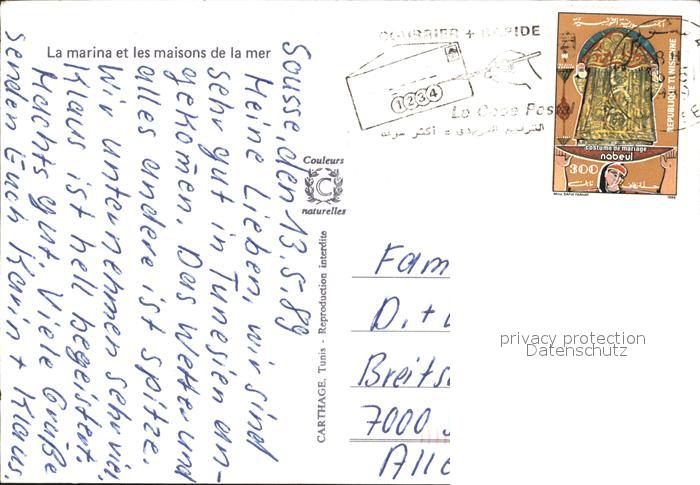 La marina et les maisons de la mer
Sousse, den 13.5.89
Meine Lieben, wir sind
sehr gut in Tunesien an-
gekomen. Das Wetter und
alles andere ist spitze.
Wir unternehmen sehr viel
Klaus ist hell begeistert.
Machts gut. Viele Grüße
senden Euch Karin + Klaus.
Couleurs
C
naturelles
CARTHAGE, Tunis - Reproduction interdite
COURRIER + RAPIDE
1234
Le Code Postal
الترقيم البريدي = أكثر سرعة
REPUBLIQUE TUNISIENNE
costume de mariage
nabeul
300
1986
Fam
D. +
Breits
7000
Alle
privacy protection
Datenschutz